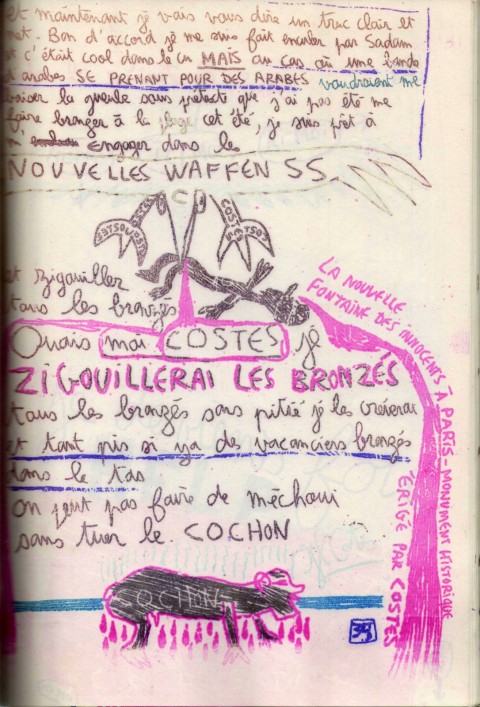 et maintenant je vais vous dire un truc clair et
net. Bon d'accord je me suis fait enculer par Sadam
et c'était cool dans le cu MAIS au cas où une bande
d'arabes SE PRENANT POUR DES ARABES voudraient me
baiser la gueule sous prétexte que j'ai pas été me
faire bronzer à la plage cet été, je suis prêt à
m' Engager dans les
NOUVELLES WAFFEN SS
COSTES
et zigouiller
tous les bronzés
Ouais moi COSTES je
ZIGOUILLERAI LES BRONZÉS
tous les bronzés sans pitié je les crèverai
et tant pis si ya des vacanciers bronzés
dans le tas
on peut pas faire de méchoui
sans tuer le COCHON
LA NOUVELLE
FONTAINE DES INNOCENTS À PARIS - MONUMENT HISTORIQUE
ERIGÉ PAR COSTES
COCHON
34